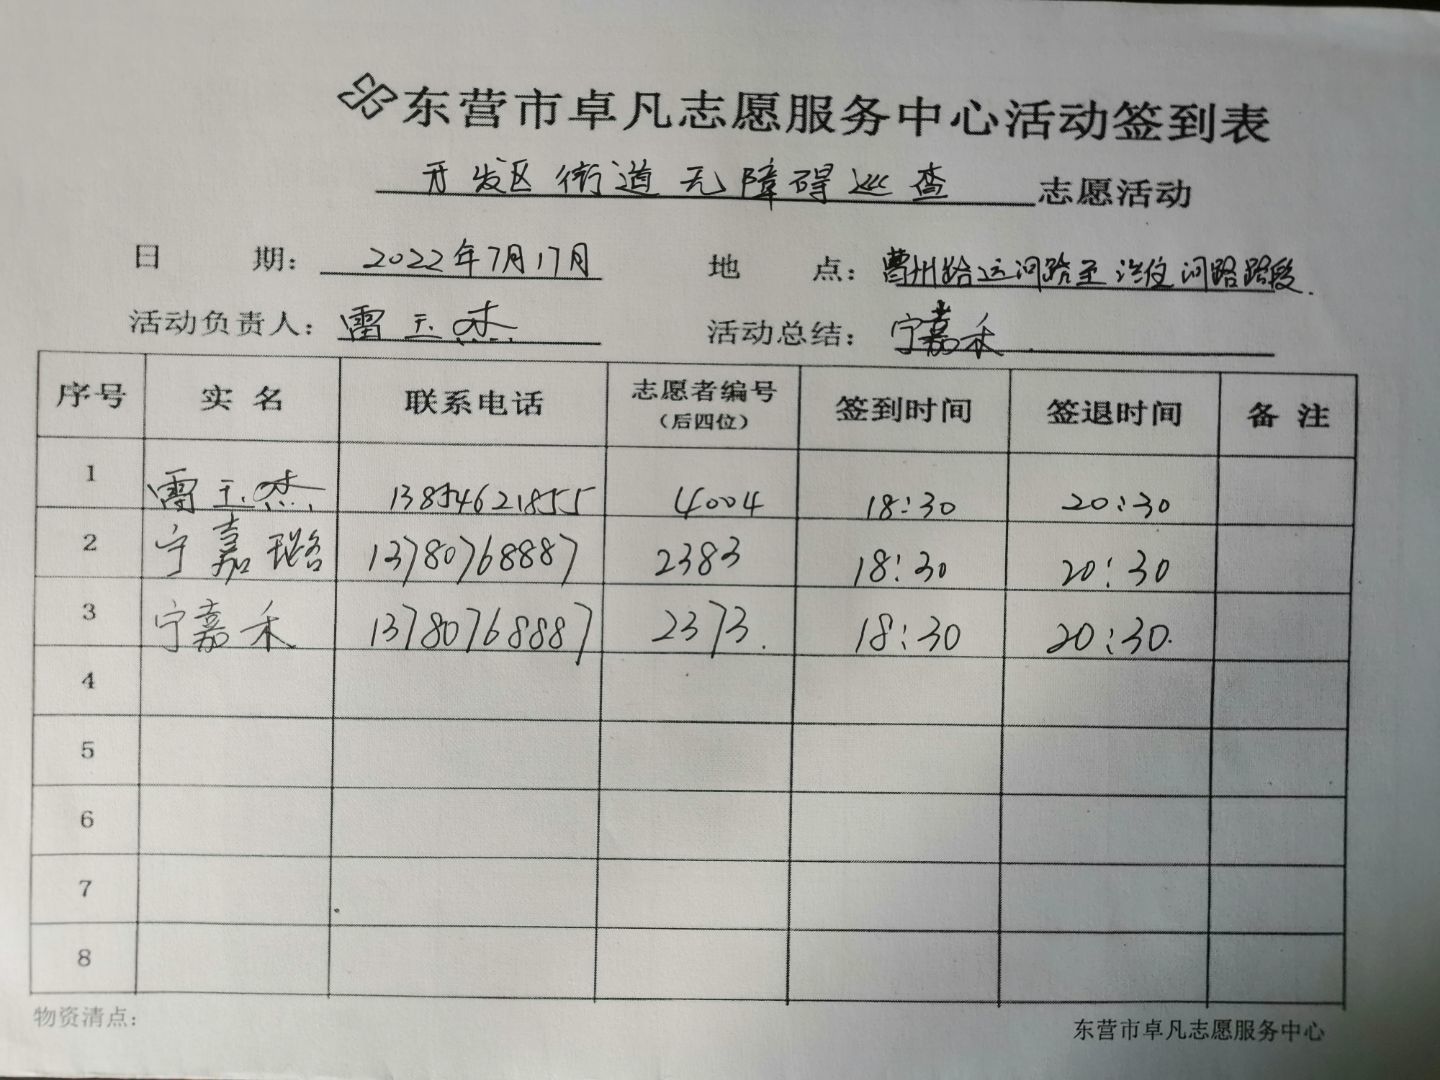 东营市卓凡志愿服务中心活动签到表
开发区街道无障碍巡查 志愿活动
日 期： 2022年7月17月 地 点： 曹州路运河路至 河路路段.
活动负责人： 雷玉杰 活动总结： 宁嘉禾
序号 实名 联系电话 志愿者编号（后四位） 签到时间 签退时间 备注
1 雷玉杰 13854621855 4004 18:30 20:30
2 宁嘉璐 13780768887 2383 18:30 20:30
3 宁嘉禾 13780768887 2373. 18:30 20:30.
4
5
6
7
8
物资清点：
东营市卓凡志愿服务中心